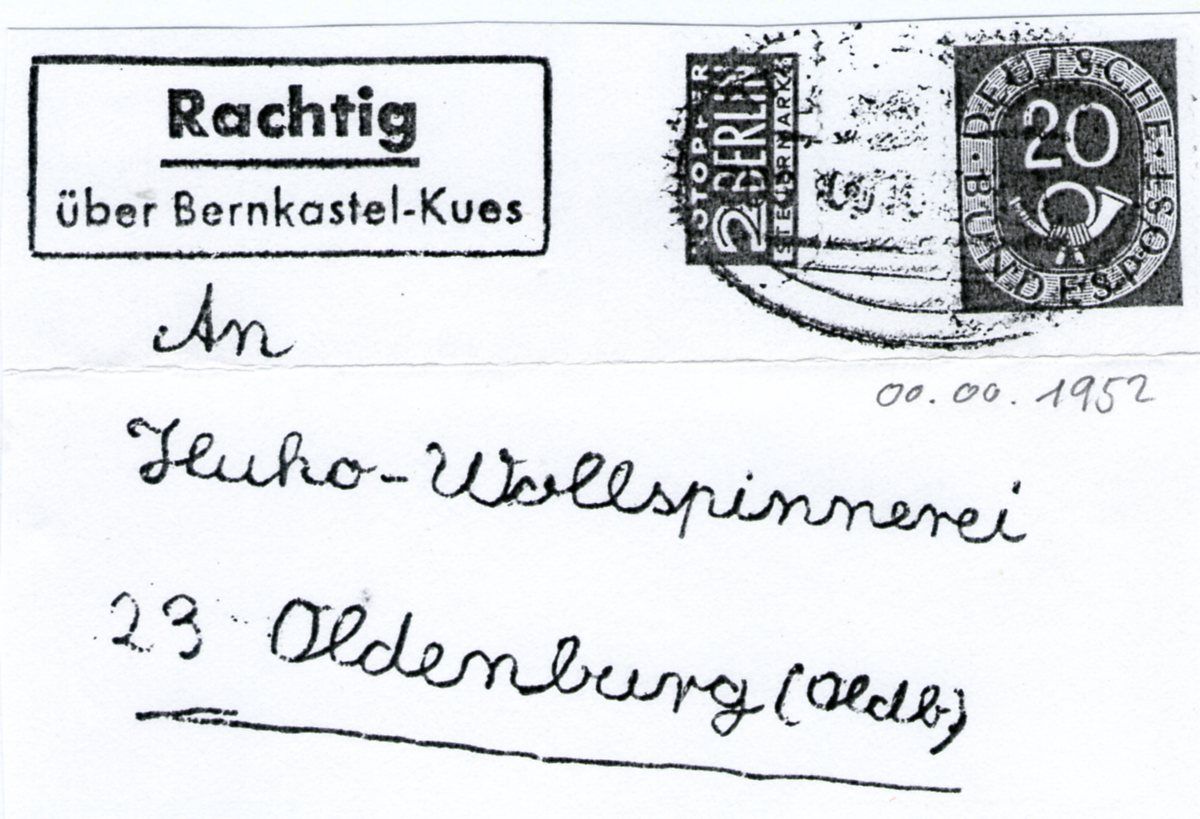 Rachtig
über Bernkastel-Kues
NOTOPFER
2 BERLIN
STEUERMARKE
DEUTSCHE BUNDESPOST
20
An
00.00.1952
Huko-Wollspinnerei
23 Oldenburg (Oldb)